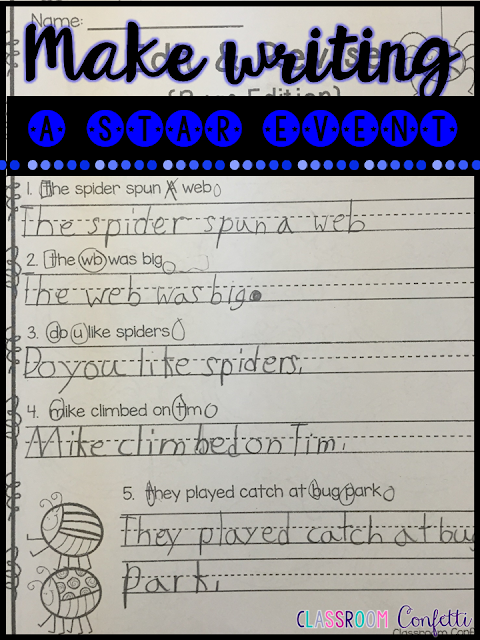 Name:
Make writing
A STAR EVENT
1. the spider spun A web
The spider spun a web
2. the wb was big
The web was big.
3. do u like spiders
Do you like spiders.
4. mike climbed on tim
Mike climbed on Tim.
5. they played catch at bug park
They played catch at bug
Park.
CLASSROOM Confetti